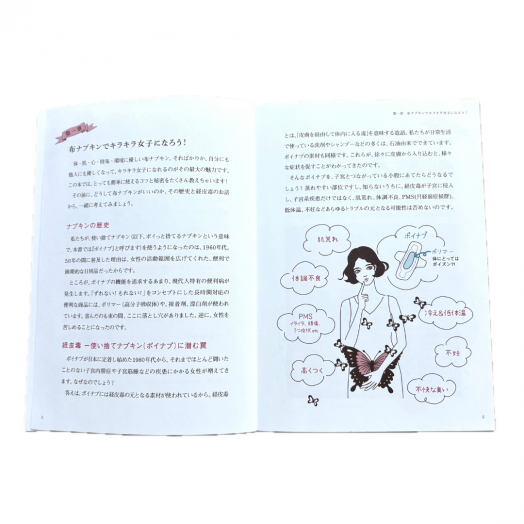 第一章
布ナプキンでキラキラ女子になろう！
体・肌・心・経済・環境に優しい布ナプキン。そればかりか、自分にも
他人にも優しくなって、キラキラ女子になれるのがその最大の魅力です。
この本では、とっても簡単に使えるコツと秘密をたくさん教えちゃいます！
その前に、どうして布ナプキンがいいのか、その歴史と経皮毒のお話
から、一緒に考えてみましょう。
ナプキンの歴史
私たちが、使い捨てナプキン(以下、ポイっと捨てるナプキンという意味
で、本書では『ポイナプ』と呼びます)を使うようになったのは、1960年代。
50年の間に普及した理由は、女性の活動範囲を広げてくれた、便利で
画期的な日用品だったからです。
ところが、ポイナプの機能を追求するあまり、現代人特有の便利病が
発生します。「ずれない！もれない！」をコンセプトにした長時間対応の
ポイナプには、ポリマー(高分子吸収体)や、接着剤、漂白剤が使われ
ています。喜んだのも束の間、ここに落とし穴がありました。逆に、女性を
苦しめることになったのです。
経皮毒 ー使い捨てナプキン(ポイナプ)に潜む罠
ポイナプが日本に定着し始めた1980年代から、それまでほとんど聞いた
ことのない子宮内膜症や子宮筋腫などの疾患にかかる女性が増えてき
ます。なぜなのでしょう？
答えは、ポイナプには経皮毒の元となる素材が使われているから。経皮毒
第一章 布ナプキンでキラキラ女子になろう！
とは、「皮膚を経由して体内に入る毒」を意味する造語。私たちが日常生活
で使っている洗剤やシャンプーなどの多くは、石油由来でできています。
ポイナプの素材も同様です。これらが、徐々に皮膚から入り込むと、様々
な症状を促すことがわかってきたのです。
そんなポイナプを、子宮とつながっている小陰にあてたらどうなるで
しょう？蒸れやすい部位ですし、知らないうちに、経皮毒が子宮に侵入
し、子宮系疾患だけではなく、肌荒れ、体調不良、PMS(月経前症候群)、
低体温、不妊などあらゆるトラブルの元となる可能性は否めないのです。
肌荒れ
ポイナプ
ポリマー
体にとっては
ポイズンや
体調不良
PMS
イライラ、頭痛、
うつ症状 etc
冷え&低体温
不妊
高くつく
不快な臭い